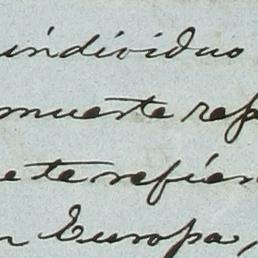 individuo
muerte rep
ete refier
n Europa,